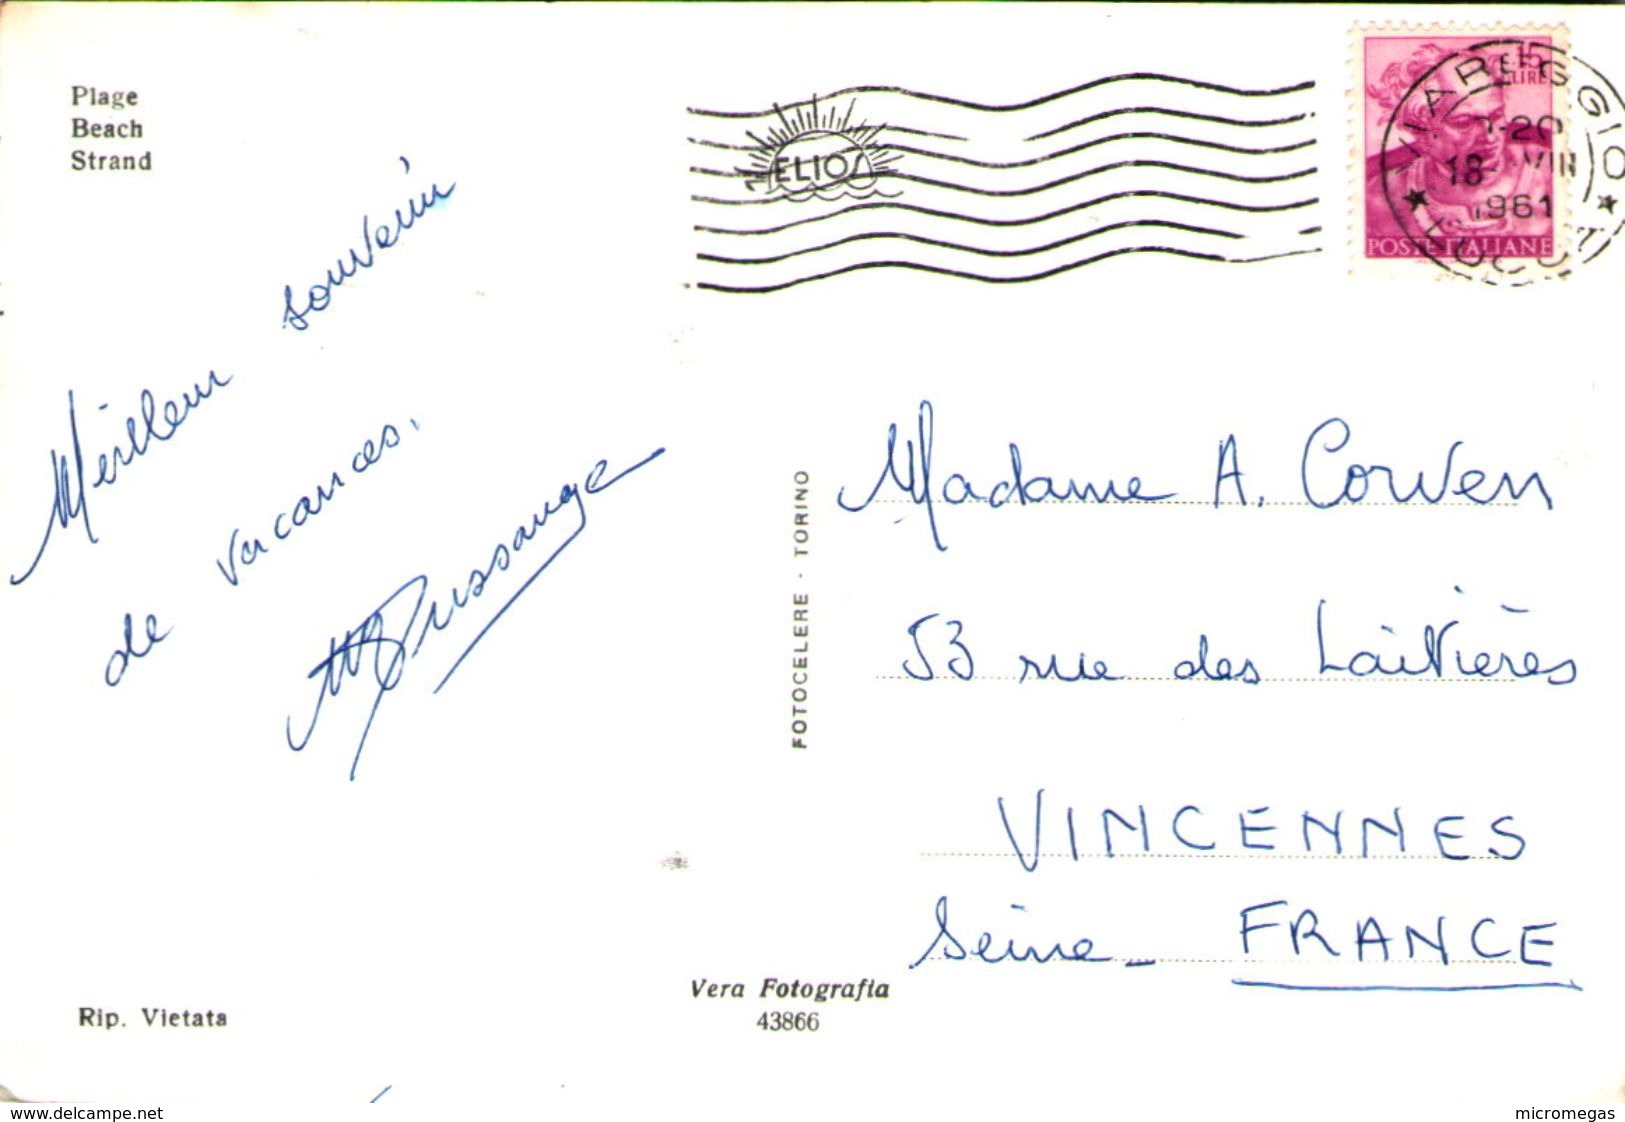 Plage
Beach
Strand
ELIOS
15
LIRE
VIAREGGIO
18
1961
POSTE ITALIANE
Meilleur souvenir
de vacances.
FOTOCELERE - TORINO
Madame A. Corven
53 rue des Laitières
VINCENNES
Seine - FRANCE
Vera Fotografia
43866
Rip. Vietata
www.delcampe.net
micromegas